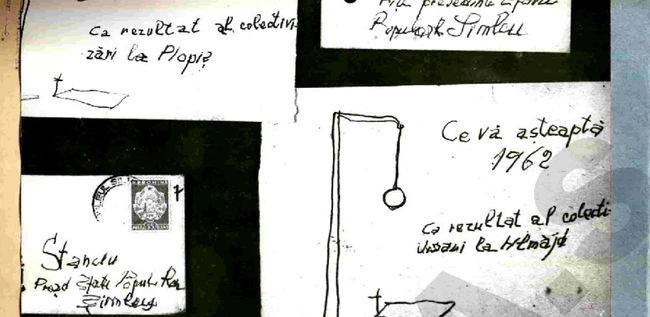 ca rezultat al colectivi
zări la Plopiș
Populară Simleu
Ce vă așteaptă
1962
ca rezultat al colecti
vizări la Hălmăjd
Stanciu
Sfatu Popular
Simleu